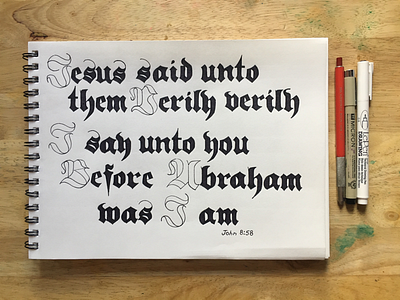 Jesus said unto
them Verily verily
I say unto you
Before Abraham
was I am
John 8:58
MICRON
DRAWING